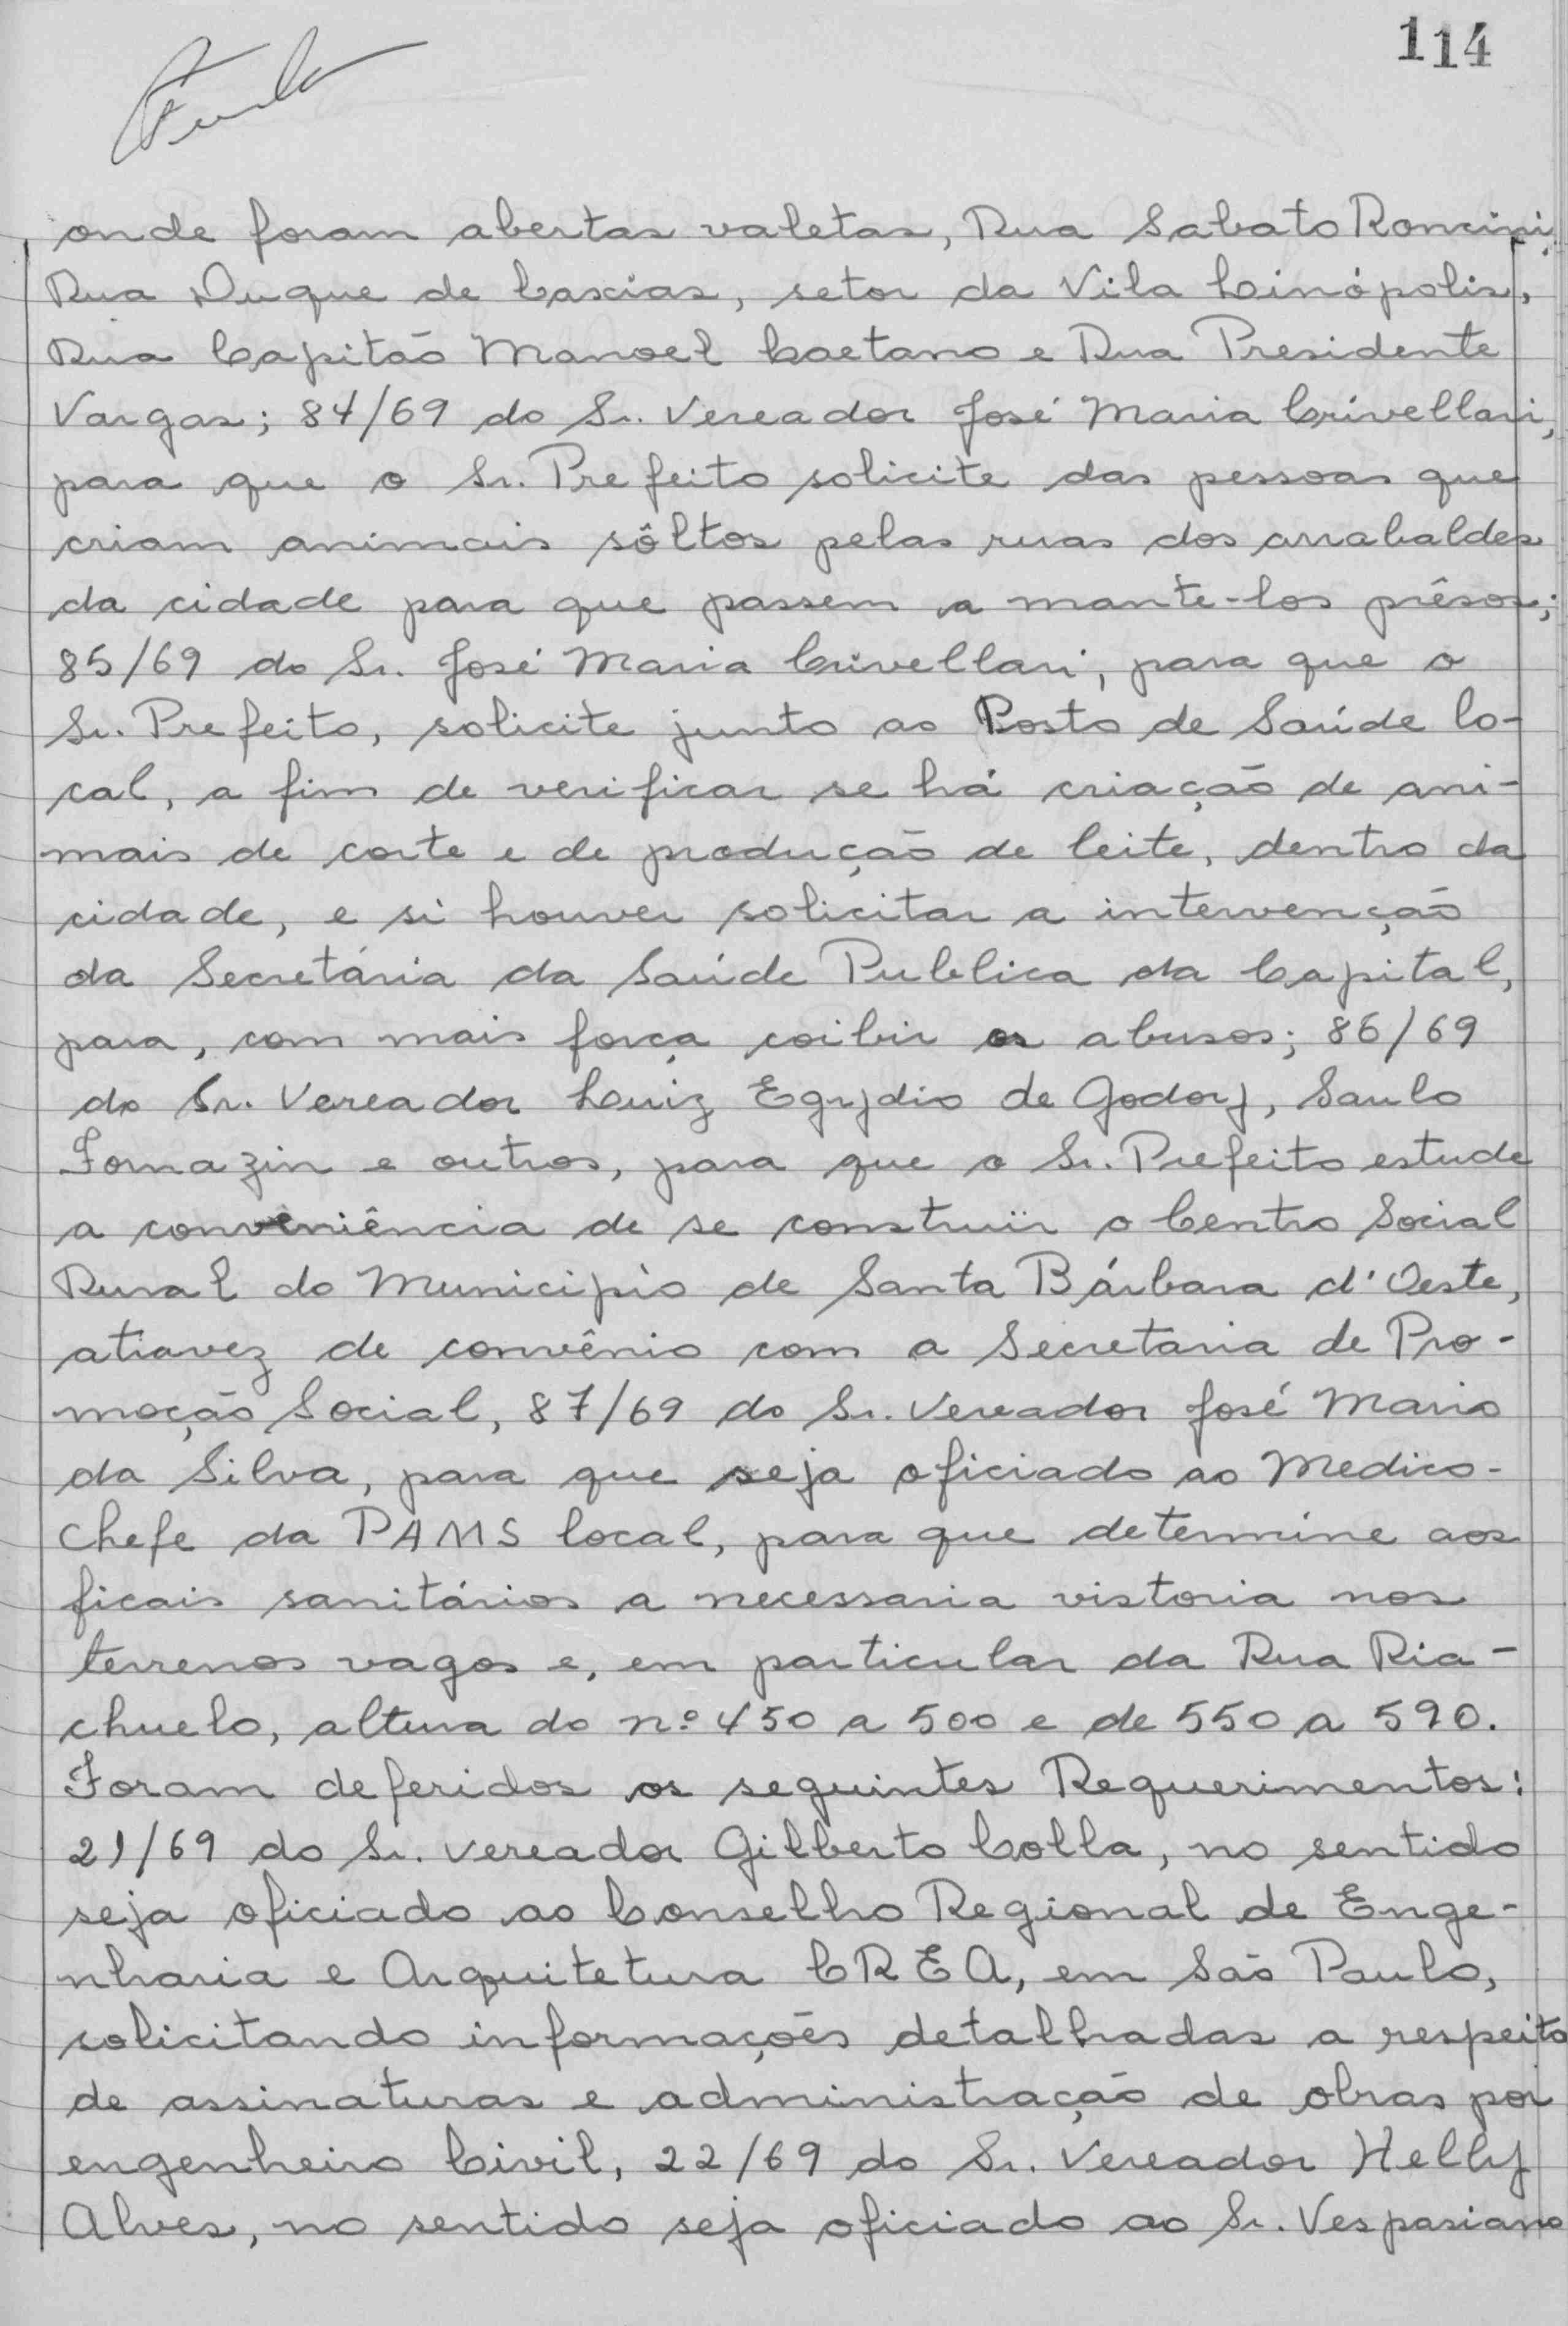 114
onde foram abertas valetas, Rua Sabato Roncini,
Rua Duque de Caxias, setor da Vila Linópolis,
Rua Capitão Manoel Caetano e Rua Presidente
Vargas; 84/69 do Sr. Vereador José Maria Crivellari,
para que o Sr. Prefeito solicite das pessoas que
criam animais sôltos pelas ruas dos arrabaldes
da cidade para que passem a mante-los prêsos;
85/69 do Sr. José Maria Crivellari, para que o
Sr. Prefeito, solicite junto ao Posto de Saúde lo-
cal, a fim de verificar se há criação de ani-
mais de corte e de produção de leite, dentro da
cidade, e si houver solicitar a intervenção
da Secretária da Saúde Publica da Capital,
para, com mais força coibir os abusos; 86/69
do Sr. Vereador Luiz Egydio de Godoy, Saulo
Fornazin e outros, para que o Sr. Prefeito estude
a conveniência de se construïr o Centro Social
Rural do Municipio de Santa Bárbara d'Oeste,
atravez de convênio com a Secretaria de Pro-
moção Social, 87/69 do Sr. Vereador José Mario
da Silva, para que seja oficiado ao Medico-
Chefe da PAMS local, para que determine aos
ficais sanitários a necessaria vistoria nos
terrenos vagos e, em particular da Rua Ria-
chuelo, altura do nº 450 a 500 e de 550 a 590.
Foram deferidos os seguintes Requerimentos:
21/69 do Sr. Vereador Gilberto Colla, no sentido
seja oficiado ao Conselho Regional de Enge-
nharia e Arquitetura CREA, em São Paulo,
solicitando informações detalhadas a respeito
de assinaturas e administração de obras por
engenheiro Civil, 22/69 do Sr. Vereador Helly
Alves, no sentido seja oficiado ao Sr. Vespasiano